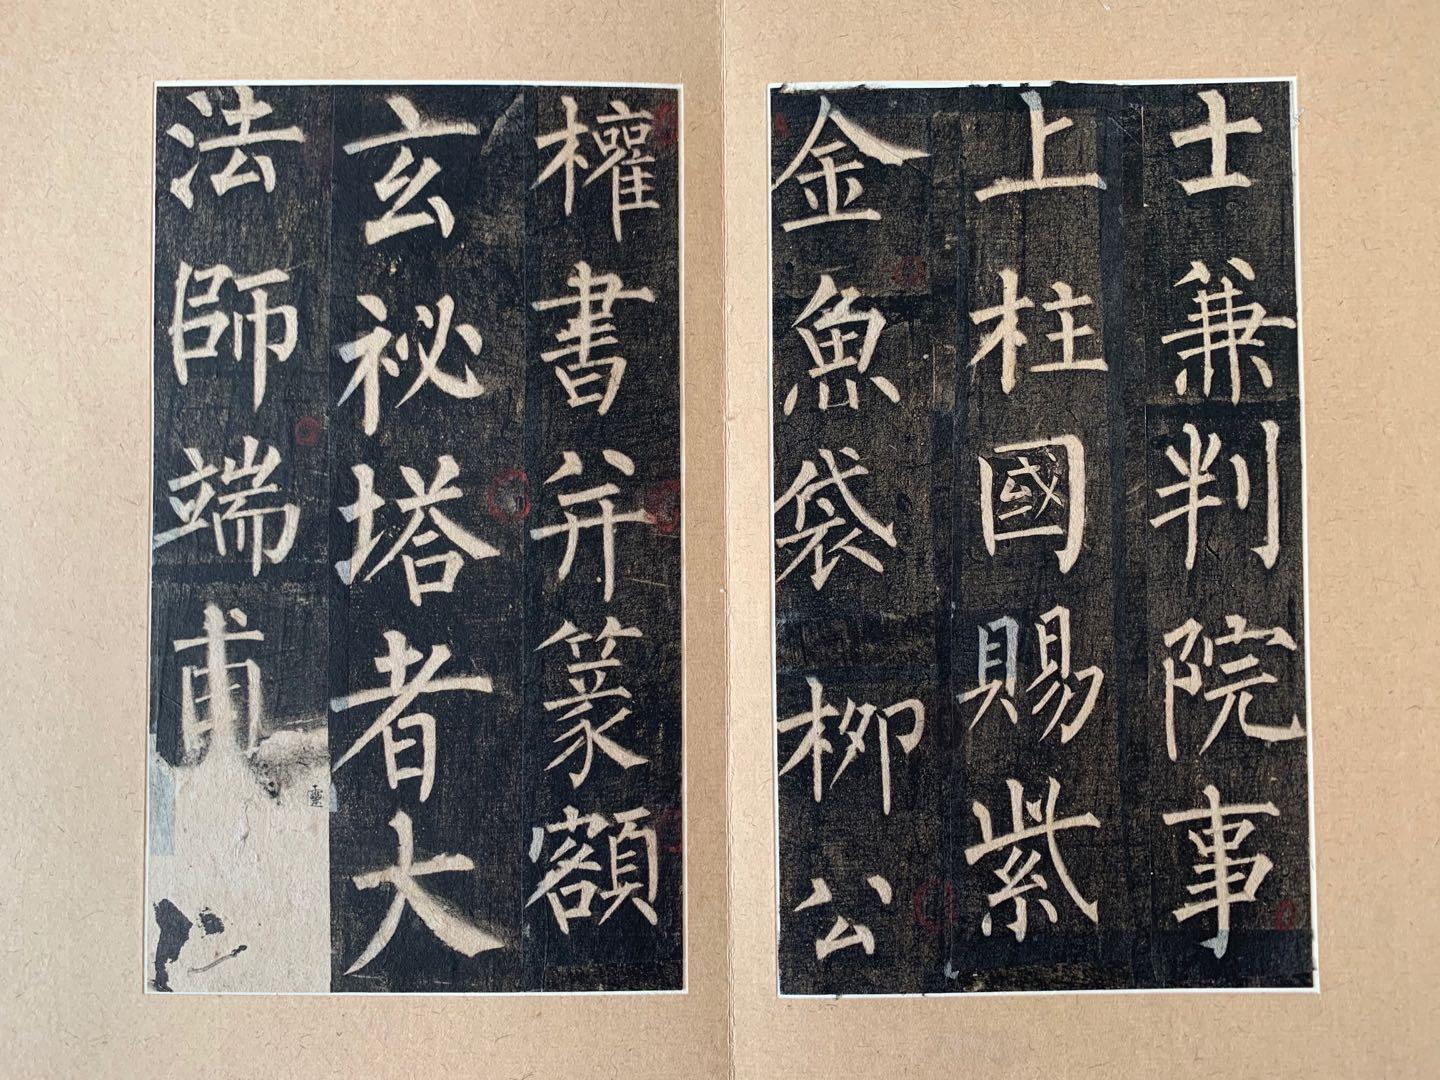 士兼判院事
上柱國賜紫
金魚袋柳公
權書并篆額
玄祕塔者大
法師端甫
靈